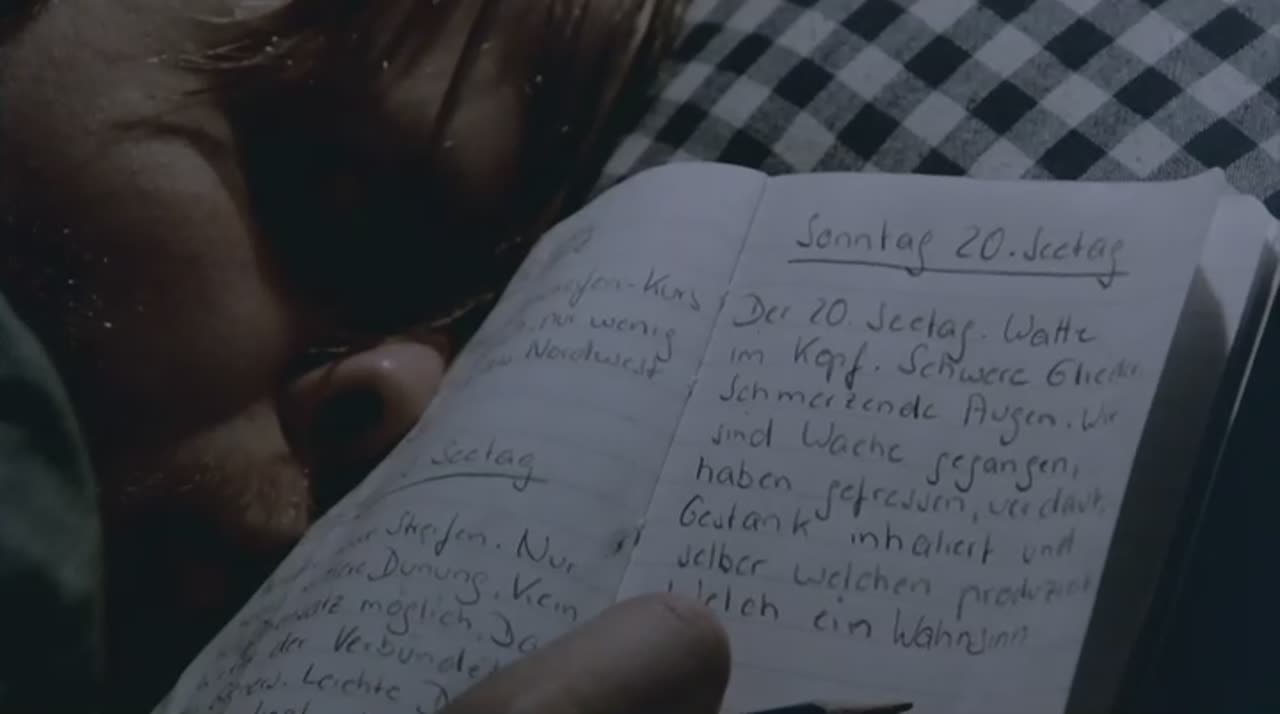 Kurs
nur wenig
Nordwest
Seetag
Streifen. Nur
Dünung. Kein
möglich. Da
der Verbunde
Leichte D
Sonntag 20. Seetag
Der 20. Seetag. Watte
im Kopf. Schwere Glieder
Schmerzende Augen. Wir
sind Wache gegangen,
haben gefressen, verdaut,
Gestank inhaliert und
selber welchen produziert
Welch ein Wahnsinn